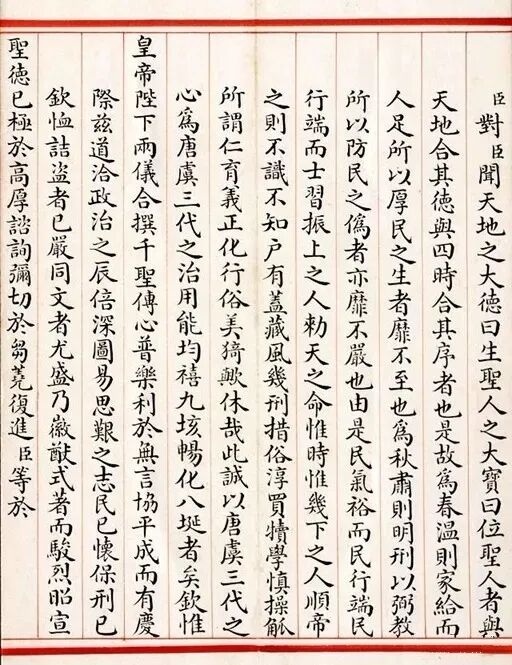 臣對臣聞天地之大德曰生聖人之大寶曰位聖人者與
天地合其德與四時合其序者也是故為春溫則家給而
人足所以厚民之生者靡不至也為秋肅則明刑以弼教
所以防民之僞者亦靡不嚴也由是民氣裕而民行端民
行端而士習振上之人勑天之命惟時惟幾下之人順帝
之則不識不知戶有蓋藏風幾刑措俗淳買犢學慎操觚
所謂仁育義正化行俗美猗歟休哉此誠以唐虞三代之
心為唐虞三代之治用能均禧九垓暢化八埏者矣欽惟
皇帝陛下兩儀合撰千聖傳心普樂利於無言協平成而有慶
際茲道洽政治之辰倍深圖易思艱之志民已懷保刑已
欽恤詰盜者已嚴同文者尤盛乃徽猷式著而駿烈昭宣
聖德已極於高厚諮詢彌切於芻蕘復進臣等於